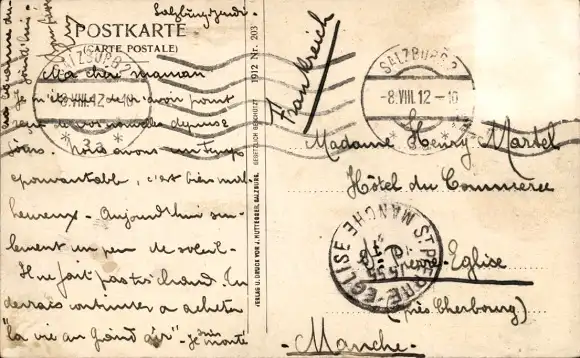 Salzburg jeudi.
POSTKARTE
(CARTE POSTALE)
Ma chère maman
Je m'étonne de n'avoir point
reçu de vos nouvelles depuis 2
jours. Nous avons un temps
épouvantable, c'est bien mal-
heureux - Aujourd'hui seu-
lement un peu de soleil -
Il ne fait pas très chaud. Tu
devrais continuer à acheter
"la vie au Grand air" - Je suis monté
1912 Nr. 203
GESETZLICH GESCHÜTZT
VERLAG U. DRUCK VON J. HUTTEGGER, SALZBURG.
SALZBURG 2
-8.VIII.12-10
* 3a *
Frankreich
SALZBURG 2
-8.VIII.12-10
Madame Henry Martel
Hôtel du Commerce
St Pierre-Eglise
(près Cherbourg)
- Manche -
ST PIERRE-EGLISE MANCHE